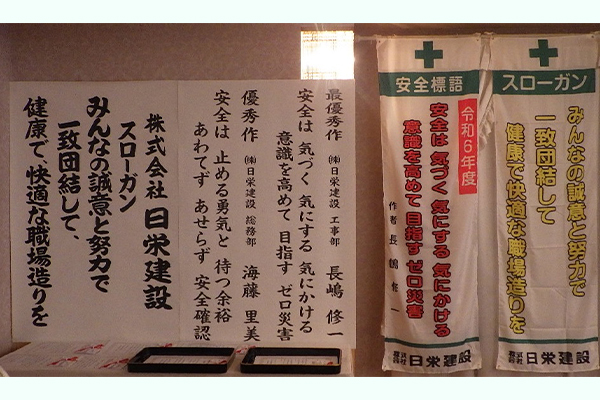 株式会社 日栄建設
スローガン
みんなの誠意と努力で
一致団結して、
健康で、快適な職場造りを
最優秀作 ㈱日栄建設 工事部 長嶋 修一
安全は 気づく 気にする 気にかける
意識を高めて 目指す ゼロ災害
優秀作 ㈱日栄建設 総務部 海藤 里美
安全は 止める勇気と 待つ余裕
あわてず あせらず 安全確認
安全標語
令和6年度
安全は 気づく 気にする 気にかける
意識を高めて 目指す ゼロ災害
作者 長嶋 修一
株式会社 日栄建設
スローガン
みんなの誠意と努力で
一致団結して
健康で快適な職場造りを
株式会社 日栄建設